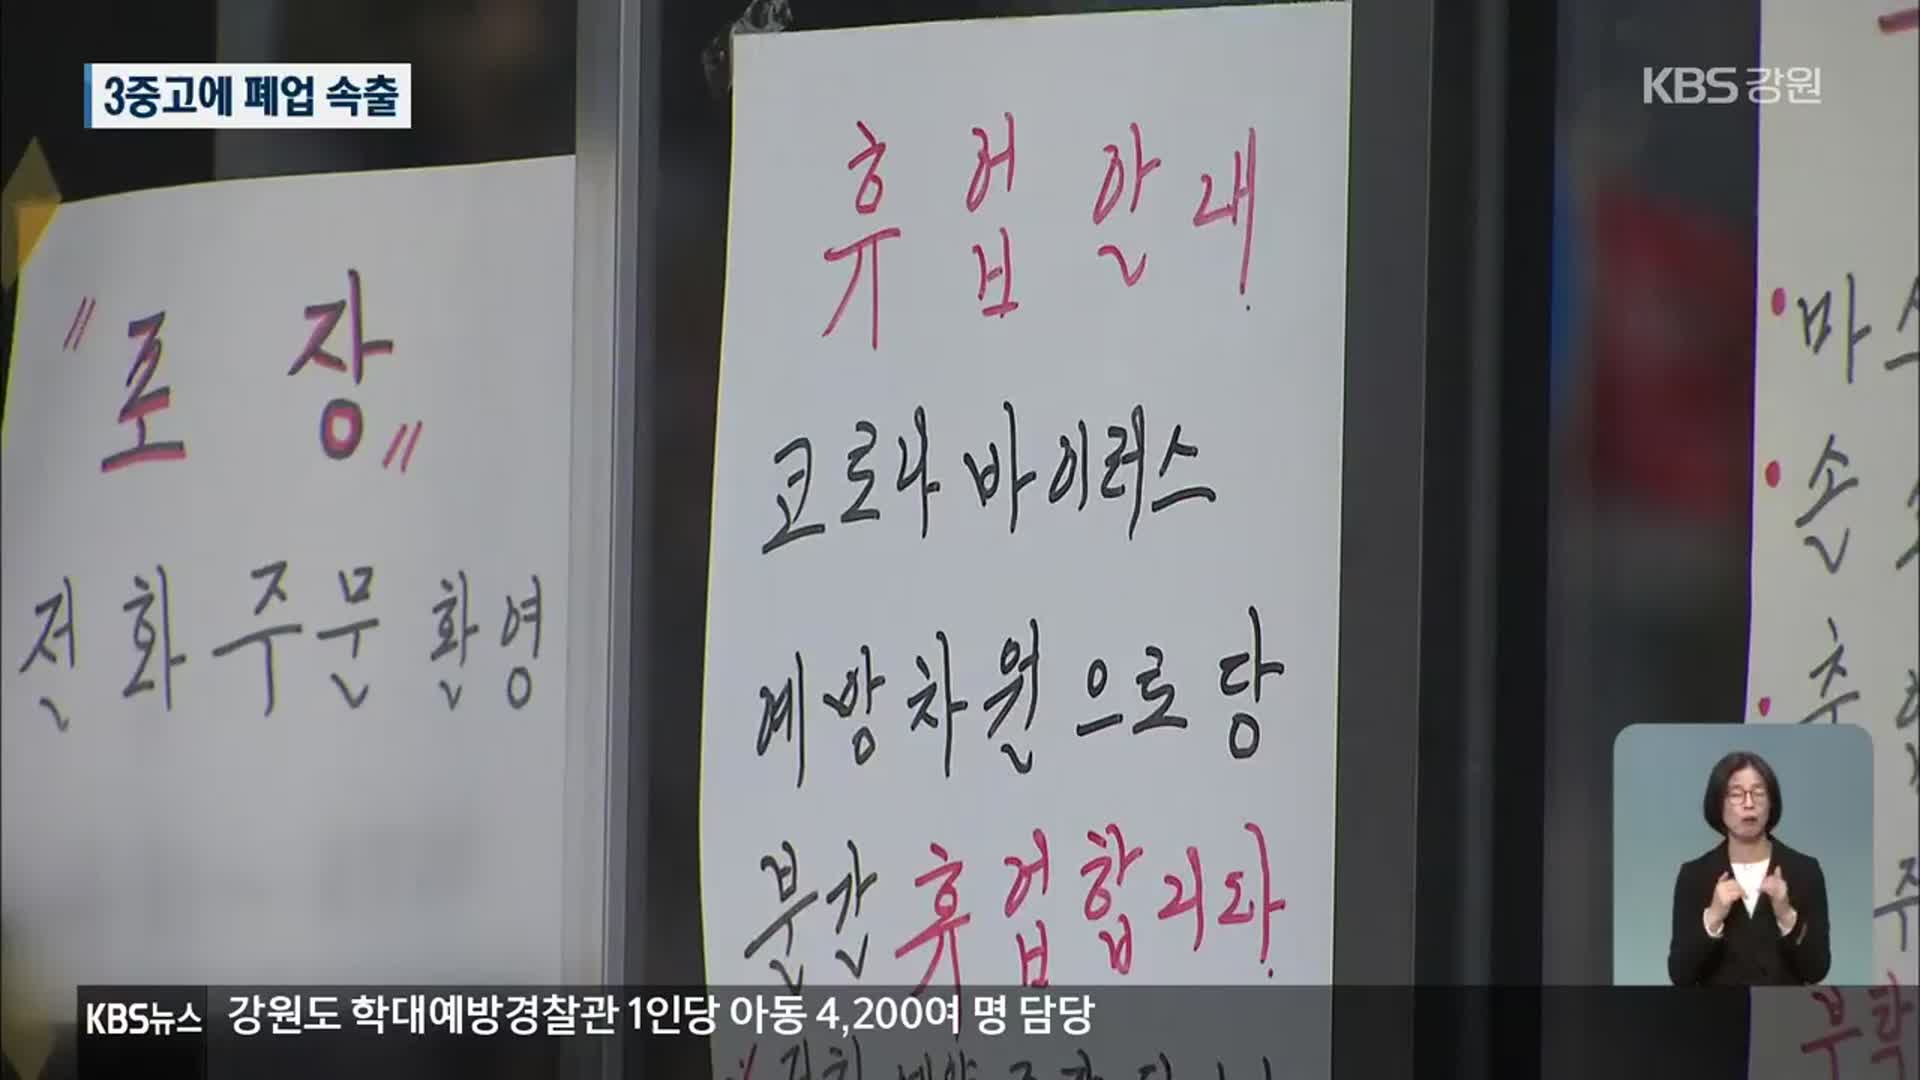 3중고에 폐업 속출
KBS 강원
"포장"
전화주문환영
휴업안내
코로나바이러스
예방차원으로당
분간휴업합니다.
마스
손
KBS뉴스 강원도 학대예방경찰관 1인당 아동 4,200여 명 담당